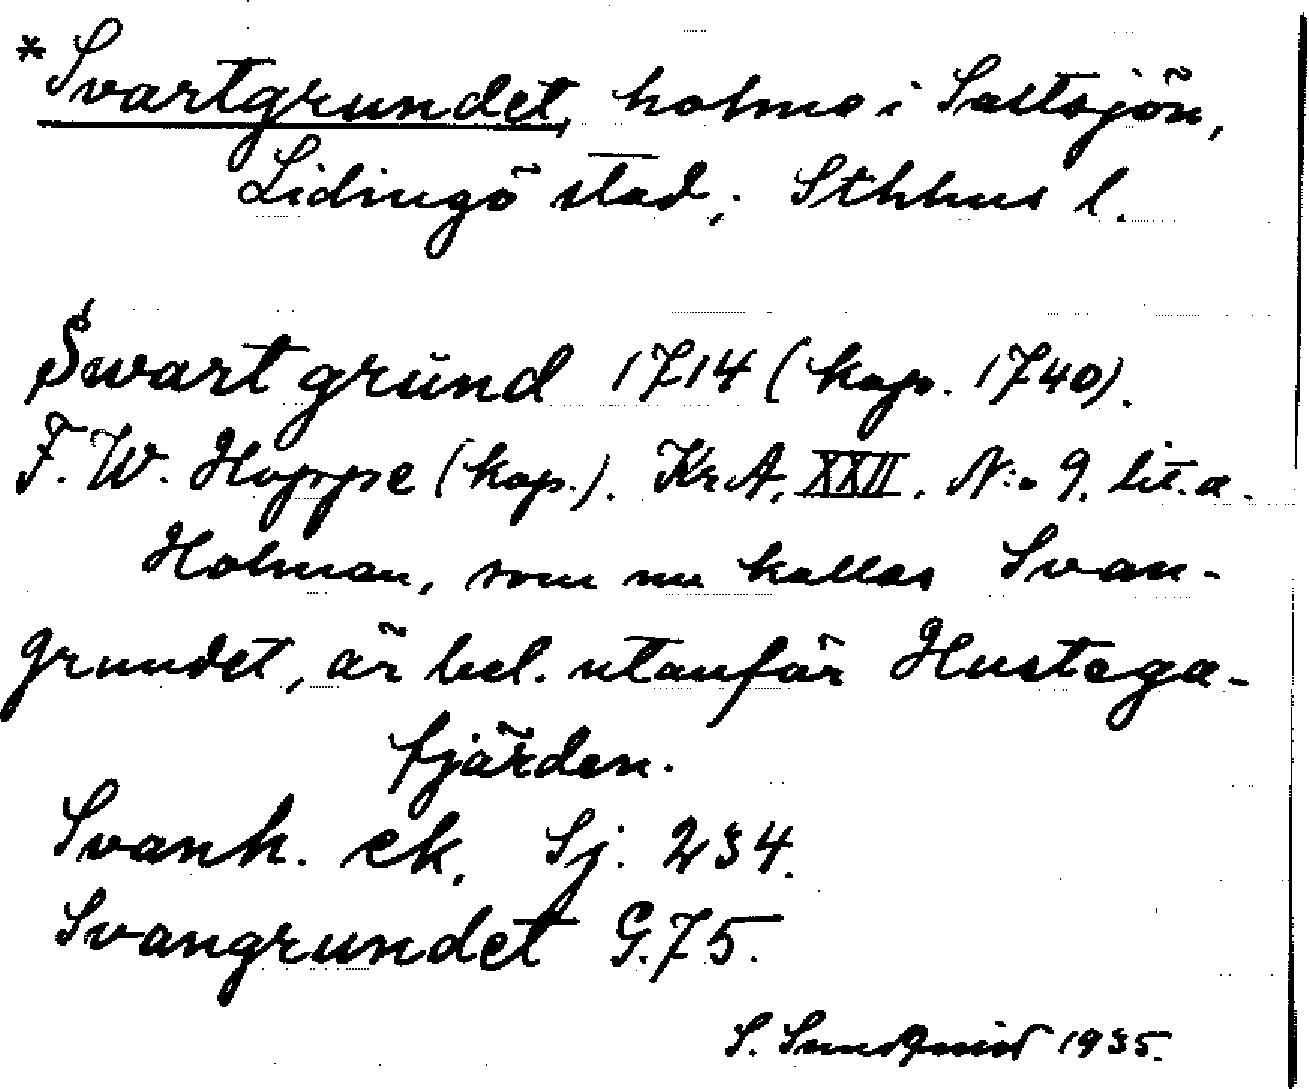 *Svartgrundet, holme i Saltsjön,
Lidingö stad, Sthlms l.
Swart grŭnd 1714 (kop. 1740).
F. W. Hoppe (kop.). KrA. XXII. N:o 9. lit. a.
Holmen, som nu kallas Svan-
grundet, är bel. utanför Hustega-
fjärden.
Svanh. ek. Sj. 234.
Svangrundet G.75.
S. 1935.